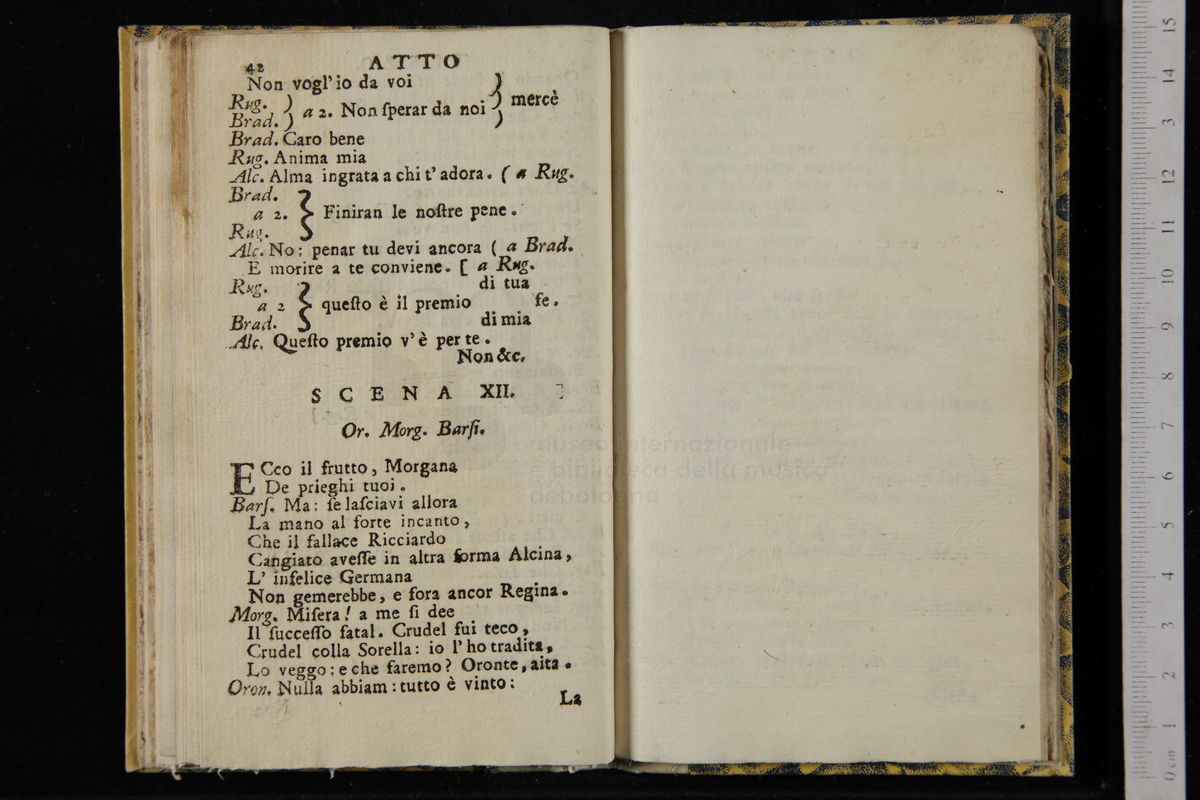 42 ATTO
Non vogl' io da voi
Rug. ) a 2. Non ſperar da noi ) mercè
Brad. )
Brad. Caro bene
Rug. Anima mia
Alc. Alma ingrata a chi t' adora. ( a Rug.
Brad.
a 2. } Finiran le noſtre pene.
Rug.
Alc. No: penar tu devi ancora ( a Brad.
E morire a te conviene. [ a Rug.
Rug. di tua
a 2 } queſto è il premio fe.
Brad. di mia
Alc. Queſto premio v' è per te.
Non &c.
SCENA XII.
Or. Morg. Barſi.
ECco il frutto, Morgana
De prieghi tuoi.
Barſ. Ma: ſe laſciavi allora
La mano al forte incanto,
Che il fallace Ricciardo
Cangiato aveſſe in altra forma Alcina,
L' infelice Germana
Non gemerebbe, e fora ancor Regina.
Morg. Miſera! a me ſi dee
Il ſucceſſo fatal. Crudel fui teco,
Crudel colla Sorella: io l' ho tradita,
Lo veggo; e che faremo? Oronte, aita.
Oron. Nulla abbiam: tutto è vinto:
La
museo internazionale
e biblioteca della musica
di bologna
0 cm 1 2 3 4 5 6 7 8 9 10 11 12 13 14 15